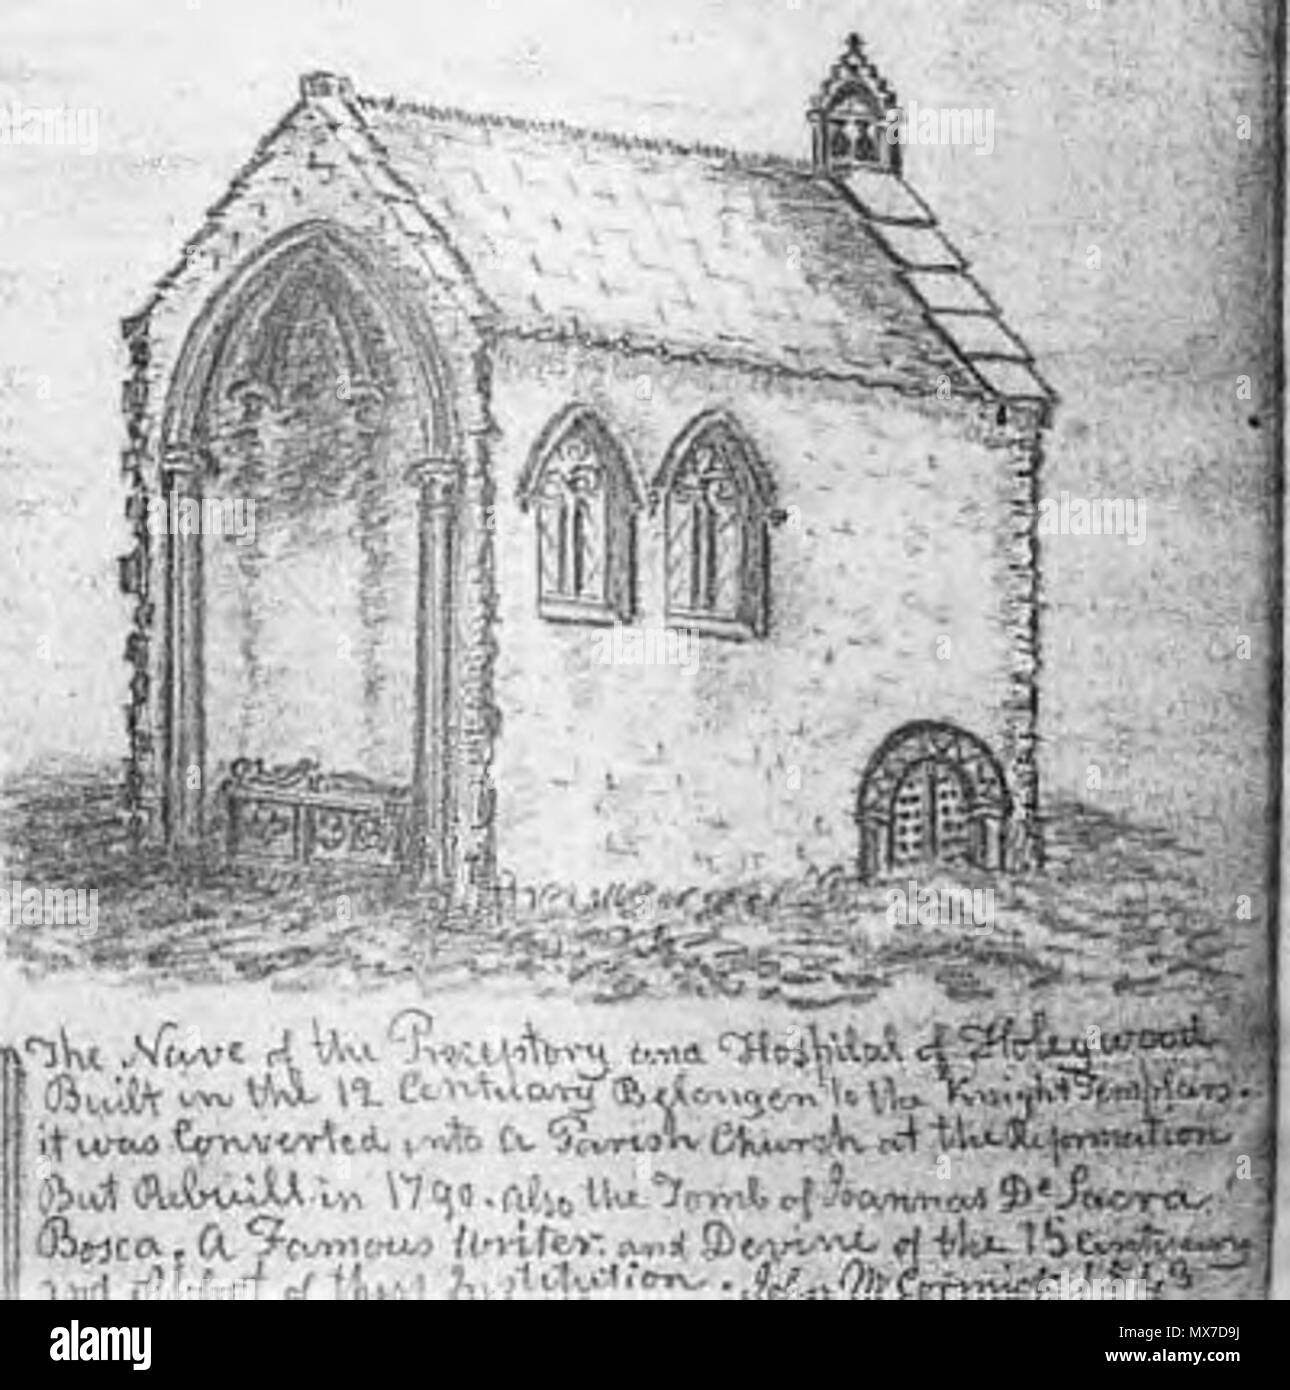 The Nave of the Preceptory and Hospital of Holeywood
Built in the 12 Centuary Belongen to the Knight Templars.
it was Converted into a Parish Church at the Reformation
But Rebuilt in 1790. also the Tomb of Joannas De Sacra
Bosca. A Famous Writer. and Devine of the 13 Centuary
and of this Institution. John McCormick
alamy
Image ID: MX7D9J
www.alamy.com